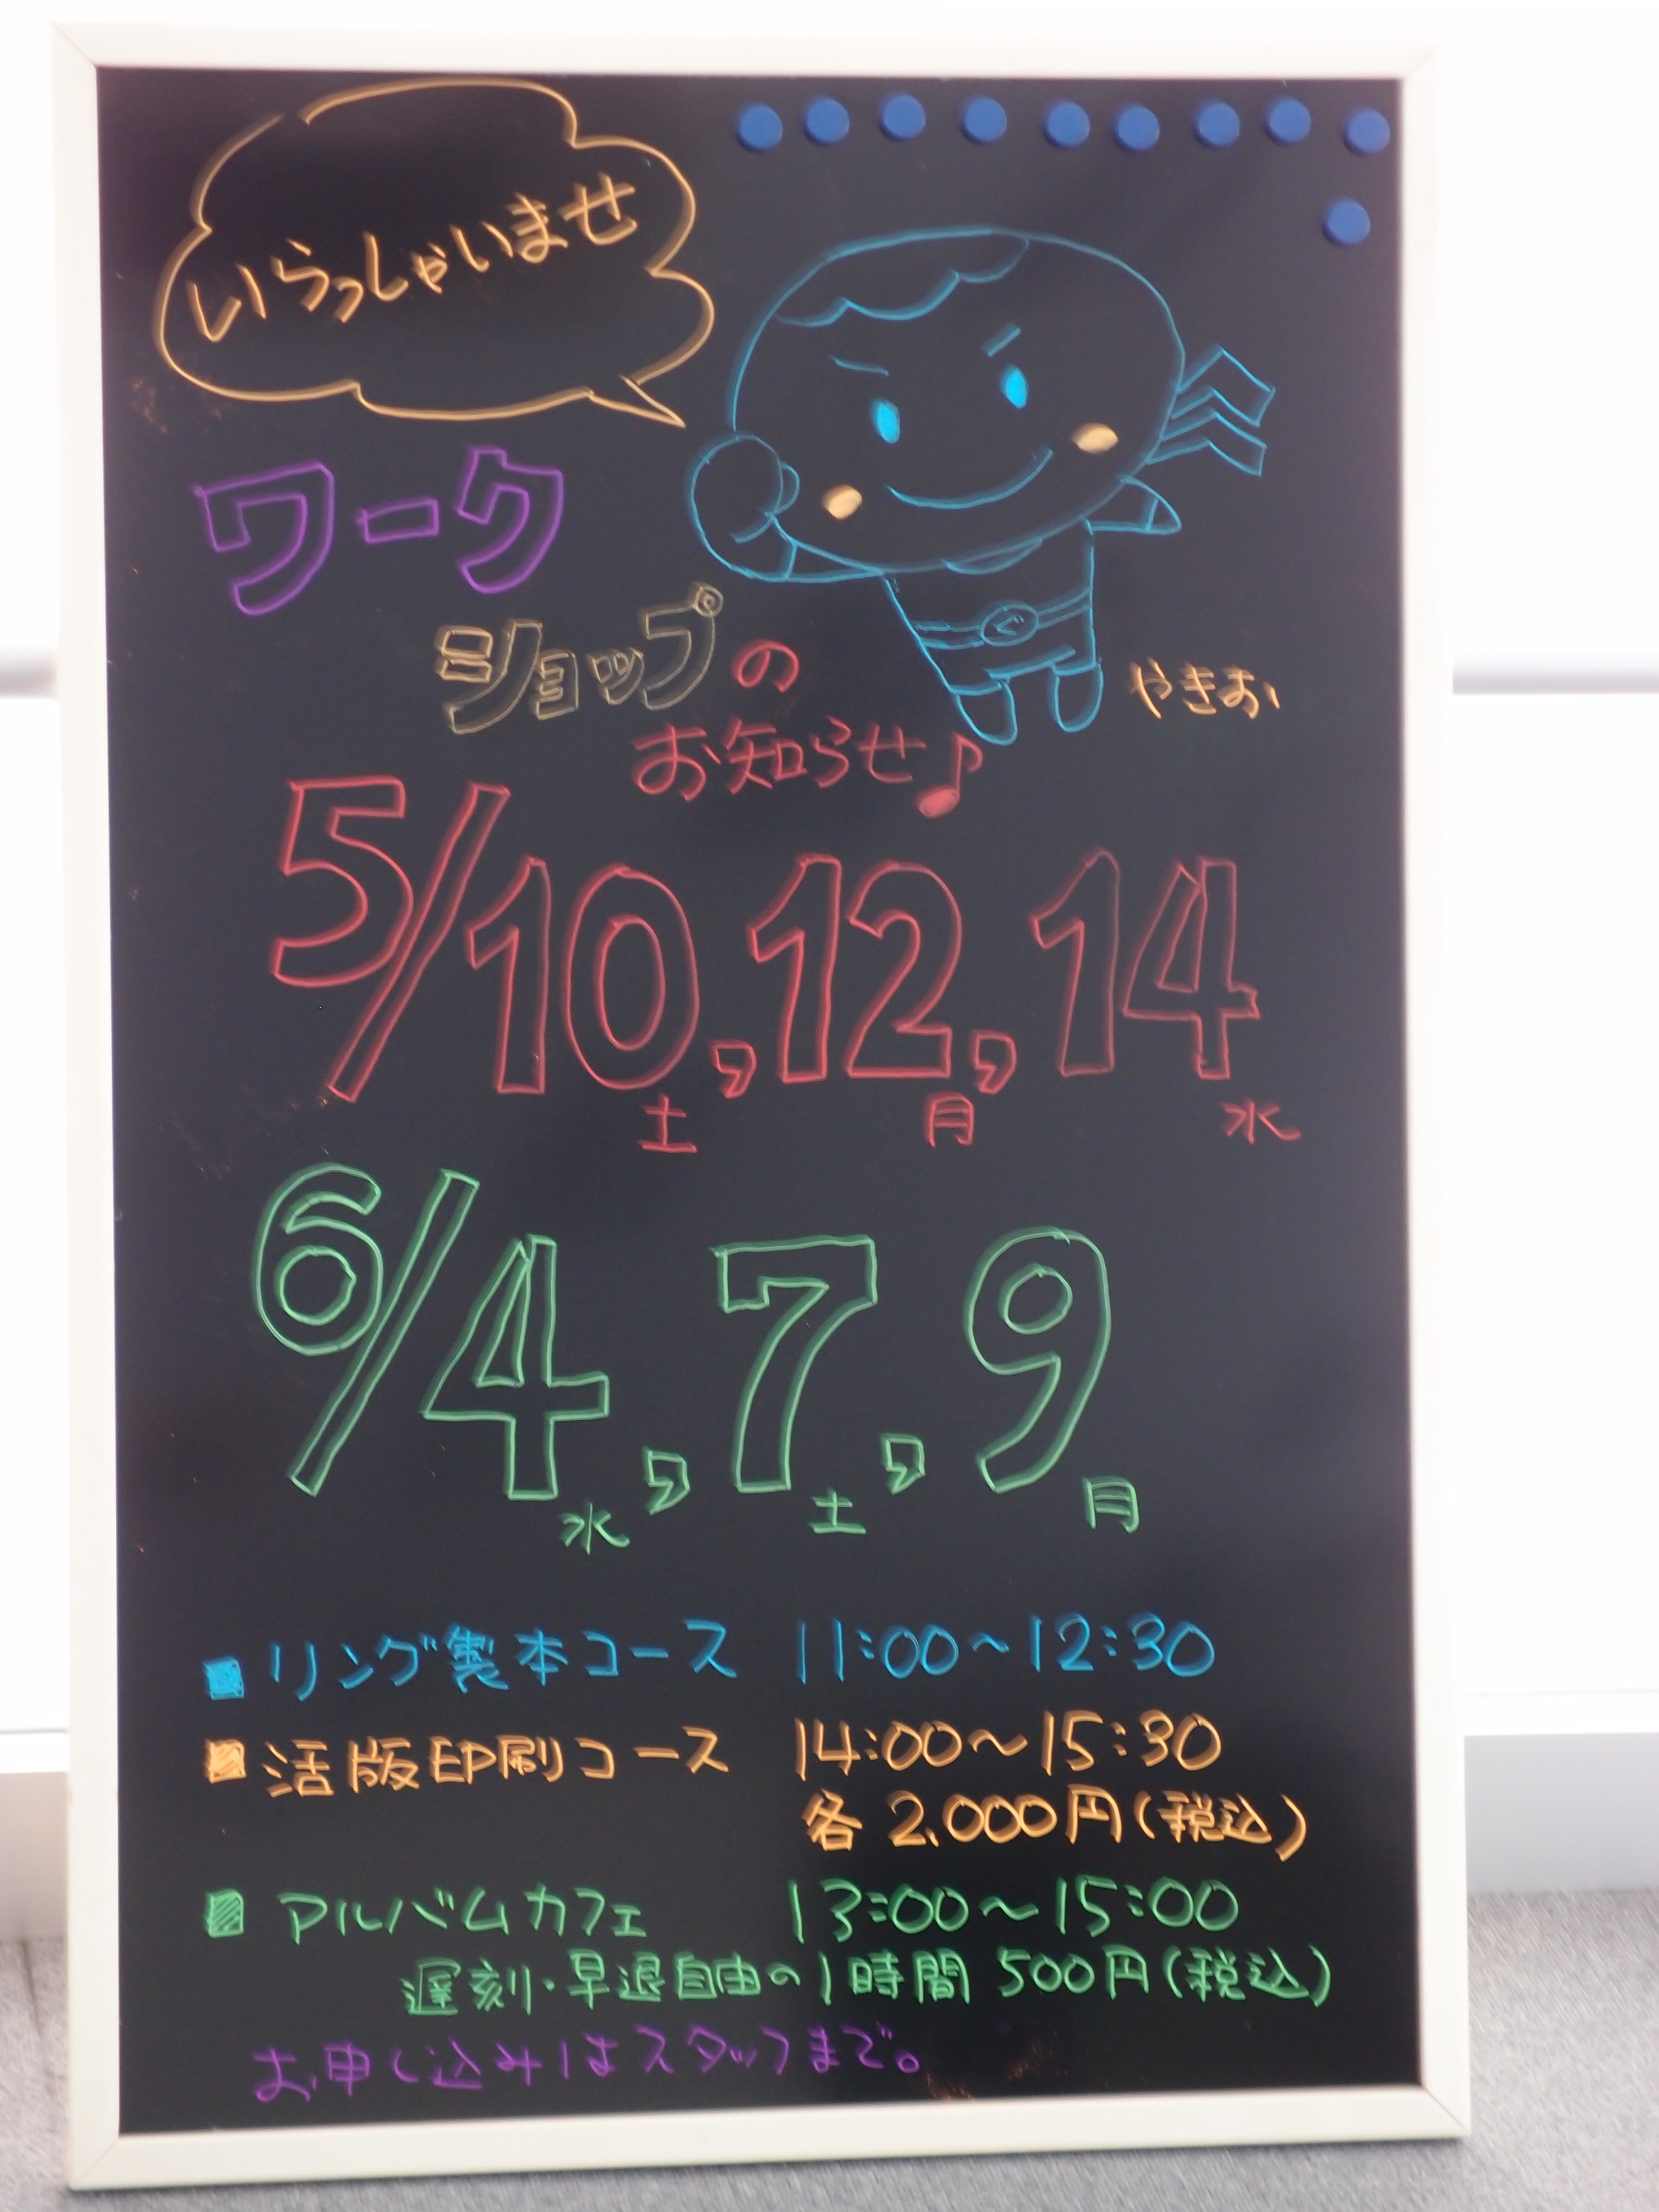 いらっしゃいませ
ワーク
ショップの
やきお
お知らせ♪
5/10, 12, 14
土 月 水
6/4, 7, 9
水 土 月
■リング製本コース 11:00~12:30
■活版印刷コース 14:00~15:30
各2,000円(税込)
■アルバムカフェ 13:00~15:00
遅刻・早退自由の1時間 500円(税込)
お申し込みはスタッフまで。